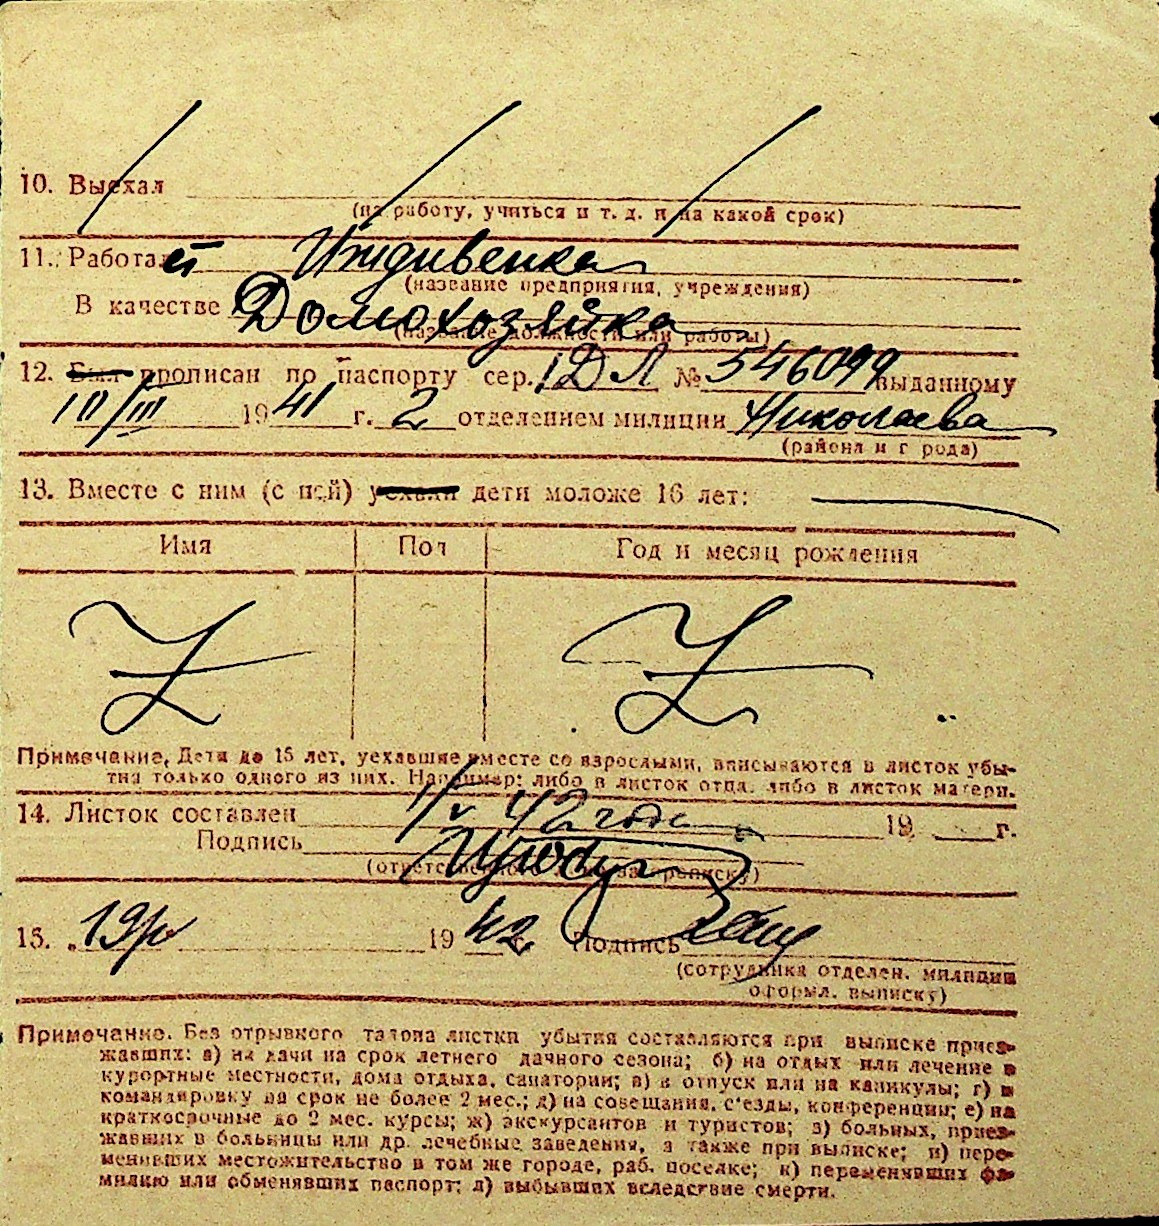 10. Выехал
(на работу, учиться и т. д. и на какой срок)
11. Работает Иждивенка
(название предприятия, учреждения)
В качестве Домохозяйка
(название должности или работы)
12. Был прописан по паспорту сер. 1ДЛ № 546099 выданному
19 41 г. 2 отделением милиции Николаева
(района и г рода)
13. Вместе с ним (с ней) уехали дети моложе 16 лет:
Имя Пол Год и месяц рождения
Примечание. Дети до 15 лет, уехавшие вместе со взрослыми, вписываются в листок убы-
тия только одного из них. Например: либо в листок отца, либо в листок матери.
14. Листок составлен 1/V 42 года 19 г.
Подпись
(ответственного за прописку)
15. 19 42 Подпись
(сотрудника отделен. милиции
оформл. выписку)
Примечание. Без отрывного талона листки убытия составляются при выписке приез-
жавших: а) на дачи на срок летнего дачного сезона; б) на отдых или лечение в
курортные местности, дома отдыха, санатории; в) в отпуск или на каникулы; г) в
командировку на срок не более 2 мес.; д) на совещания, с'езды, конференции; е) на
краткосрочные до 2 мес. курсы; ж) экскурсантов и туристов; з) больных, приез-
жавших в больницы или др. лечебные заведения, а также при выписке; и) пере-
менивших местожительство в том же городе, раб. поселке; к) переменявших фа-
милию или обменявших паспорт; л) выбывших вследствие смерти.